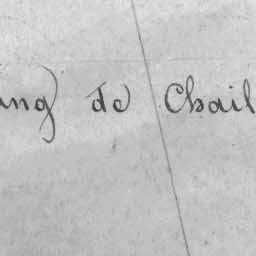 ang de Chail